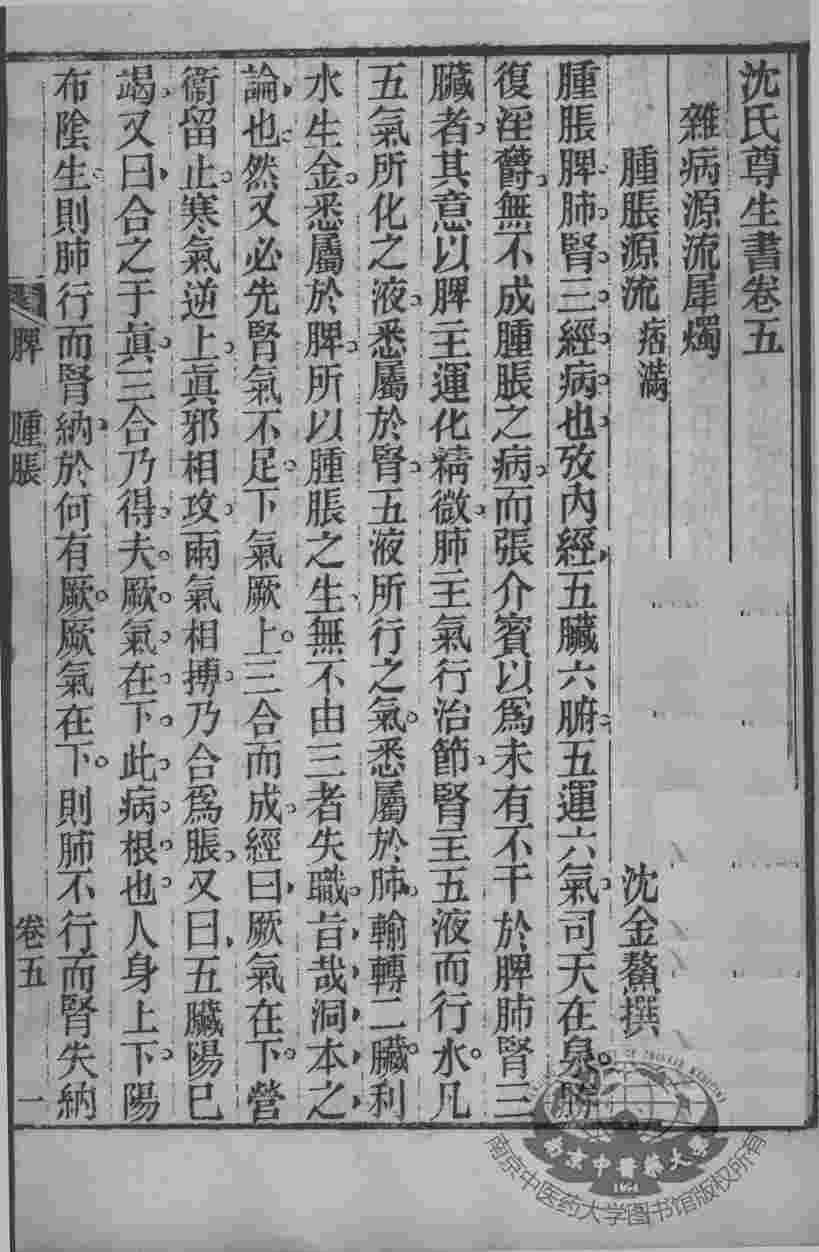 沈氏尊生書卷五
雜病源流犀燭
腫脹源流 痞滿
沈金鰲撰
腫脹脾肺腎三經病也攷內經五臟六腑五運六氣司天在泉勝
復淫鬱無不成腫脹之病而張介賓以爲未有不干於脾肺腎三
臟者其意以脾主運化精微肺主氣行治節腎主五液而行水凡
五氣所化之液悉屬於腎五液所行之氣悉屬於肺輸轉二臟利
水生金悉屬於脾所以腫脹之生無不由三者失職旨哉洞本之
論也然又必先腎氣不足下氣厥上三合而成經曰厥氣在下營
衛留止寒氣逆上眞邪相攻兩氣相搏乃合爲脹又曰五臟陽已
竭又曰合之于眞三合乃得夫厥氣在下此病根也人身上下陽
布陰生則肺行而腎納於何有厥厥氣在下則肺不行而腎失納
脾 腫脹 卷五 一
南京中醫藥大學
1954
南京中医药大学图书馆版权所有